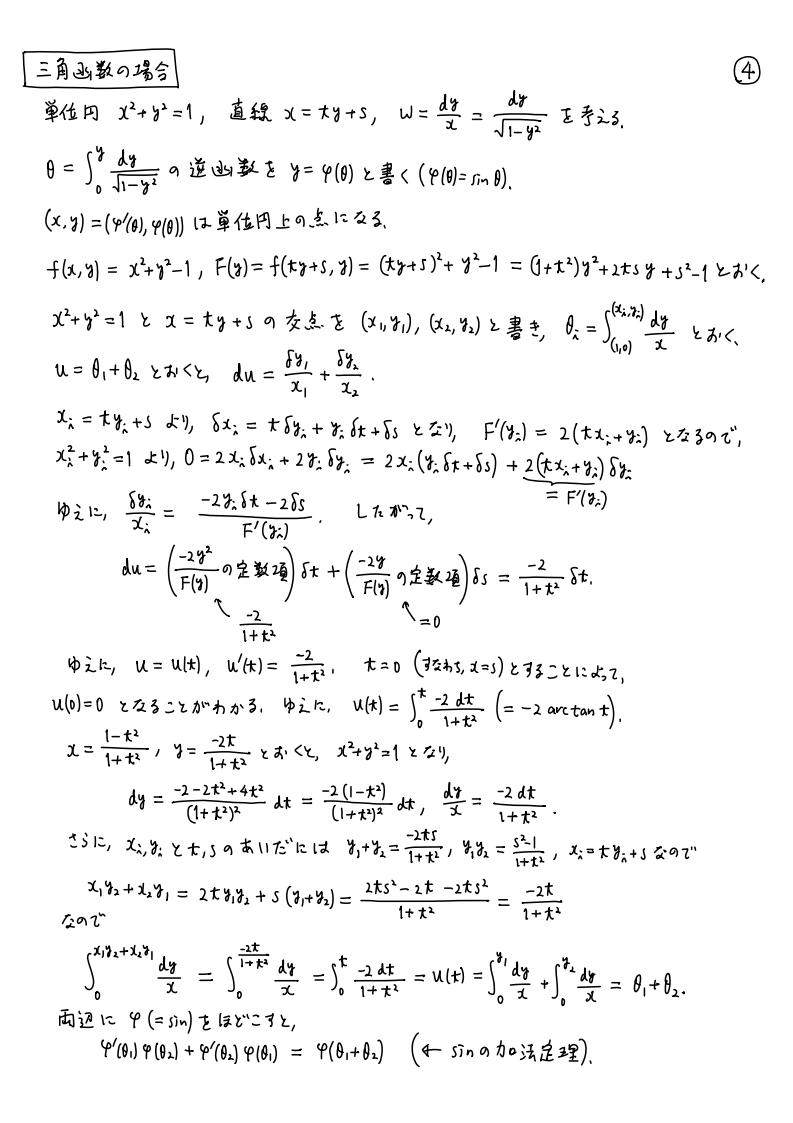 三角函数の場合
④
単位円 x²+y²=1, 直線 x=ty+s, ω = dy/x = dy/√(1-y²) を考える.
θ = ∫_0^y dy/√(1-y²) の逆函数を y=φ(θ) と書く (φ(θ)=sin θ).
(x,y)=(φ'(θ),φ(θ)) は単位円上の点になる.
f(x,y) = x²+y²-1, F(y)=f(ty+s,y)=(ty+s)²+y²-1 = (1+t²)y²+2tsy+s²-1 とおく.
x²+y²=1 と x=ty+s の交点を (x₁,y₁),(x₂,y₂) と書き, θ_i = ∫_{(1,0)}^{(x_i,y_i)} dy/x とおく.
u=θ₁+θ₂ とおくと, du = δy₁/x₁ + δy₂/x₂.
x_i = ty_i+s より, δx_i = tδy_i + y_iδt+δs となり, F'(y_i) = 2(tx_i+y_i) となるので,
x_i²+y_i²=1 より, 0=2x_iδx_i+2y_iδy_i = 2x_i(y_iδt+δs) + 2(tx_i+y_i)δy_i
= F'(y_i)
ゆえに, δy_i/x_i = (-2y_iδt-2δs)/F'(y_i). したがって,
du = (-2y²/F(y) の定数項)δt + (-2y/F(y) の定数項)δs = -2/(1+t²) δt.
↖ -2/(1+t²) ↖ =0
ゆえに, u=u(t), u'(t) = -2/(1+t²). t=0 (すなわち, x=s) とすることによって,
u(0)=0 となることがわかる. ゆえに, u(t) = ∫_0^t -2dt/(1+t²) (= -2 arctan t).
x = (1-t²)/(1+t²), y = -2t/(1+t²) とおくと, x²+y²=1 となり,
dy = (-2-2t²+4t²)/(1+t²)² dt = -2(1-t²)/(1+t²)² dt, dy/x = -2dt/(1+t²).
さらに, x_i,y_i と t,s のあいだには y₁+y₂ = -2ts/(1+t²), y₁y₂ = (s²-1)/(1+t²), x_i=ty_i+s なので
x₁y₂+x₂y₁ = 2ty₁y₂+s(y₁+y₂) = (2ts²-2t-2ts²)/(1+t²) = -2t/(1+t²)
なので
∫_0^{x₁y₂+x₂y₁} dy/x = ∫_0^{-2t/(1+t²)} dy/x = ∫_0^t -2dt/(1+t²) = u(t) = ∫_0^{y₁} dy/x + ∫_0^{y₂} dy/x = θ₁+θ₂.
両辺に φ(=sin) をほどこすと,
φ'(θ₁)φ(θ₂)+φ'(θ₂)φ(θ₁) = φ(θ₁+θ₂) (← sinの加法定理).